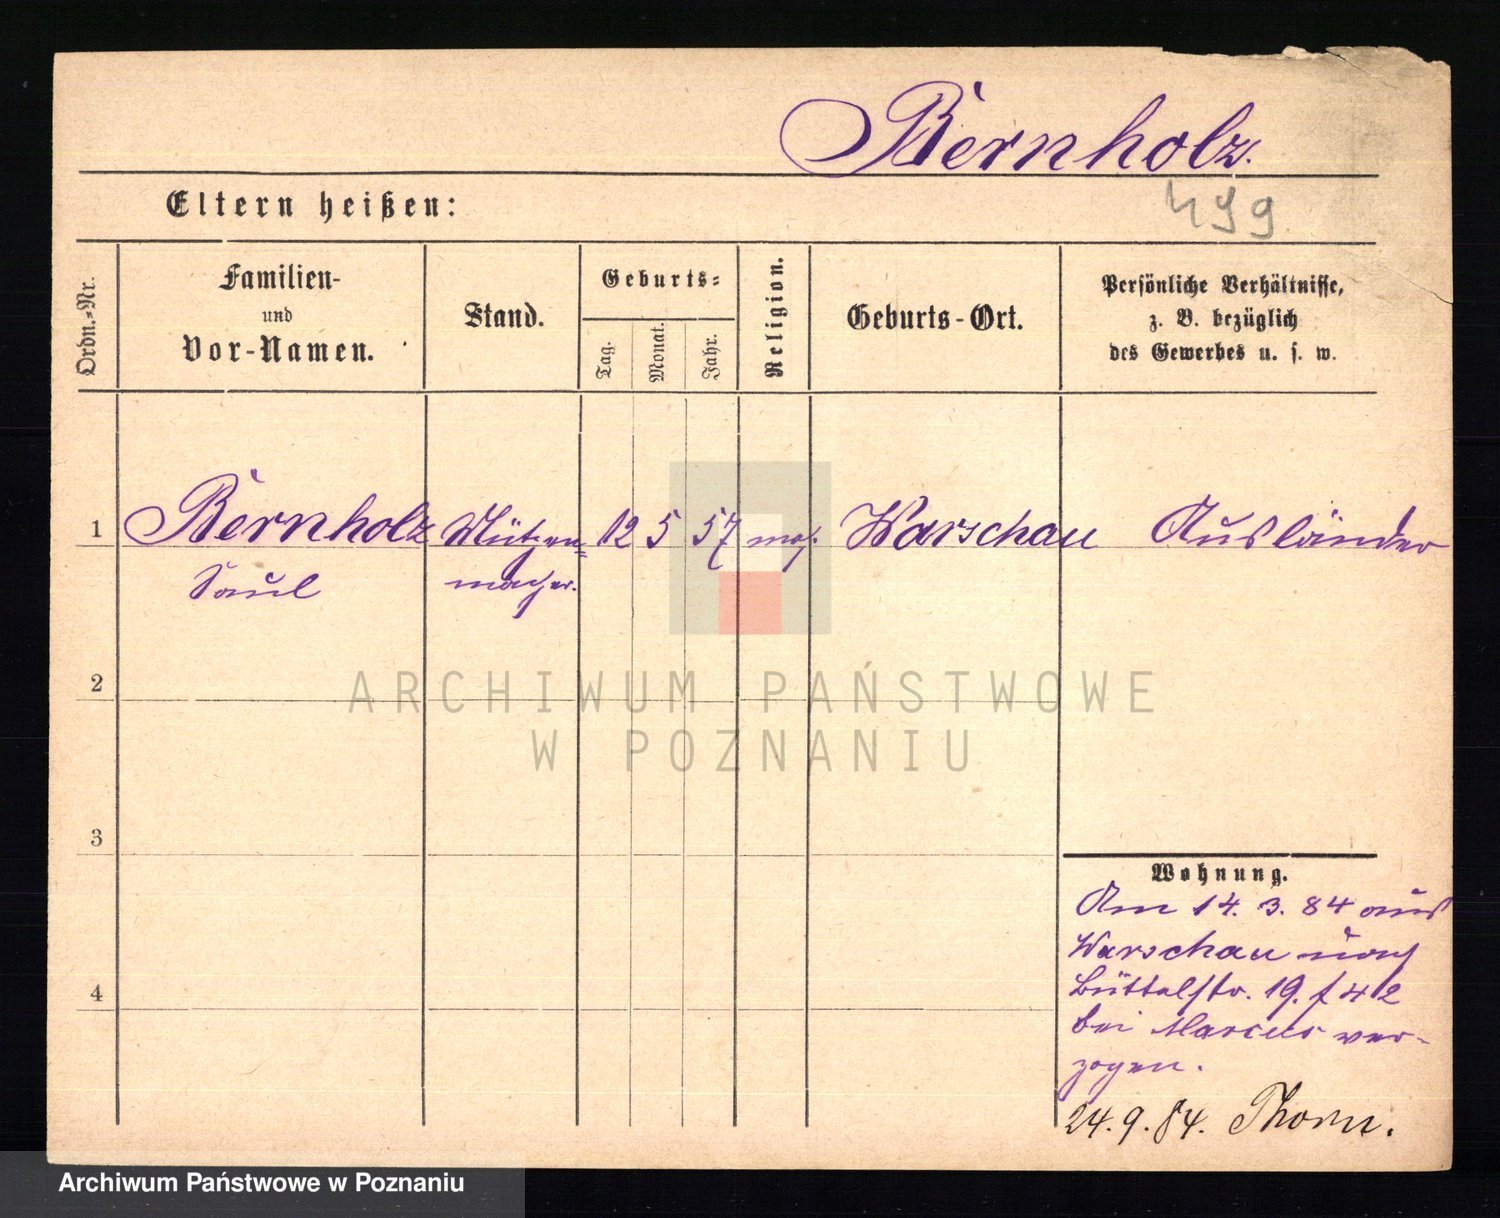 Bernholz.
499
Eltern heißen:
Ordn.-Nr.
Familien-
und
Vor-Namen.
Stand.
Geburts-
Tag.
Monat.
Jahr.
Religion.
Geburts-Ort.
Persönliche Verhältnisse,
z. B. bezüglich
des Gewerbes u. s. w.
1 Bernholz Mützen- 12 5 57 mos. Warschau Ausländer
Saul macher.
2
ARCHIWUM PAŃSTWOWE
W POZNANIU
3
Wohnung.
Am 14. 3. 84 aus
Warschau nach
Büttelstr. 19. f 42
bei Marcus ver-
zogen.
4
24. 9. 84. Thorn.
Archiwum Państwowe w Poznaniu